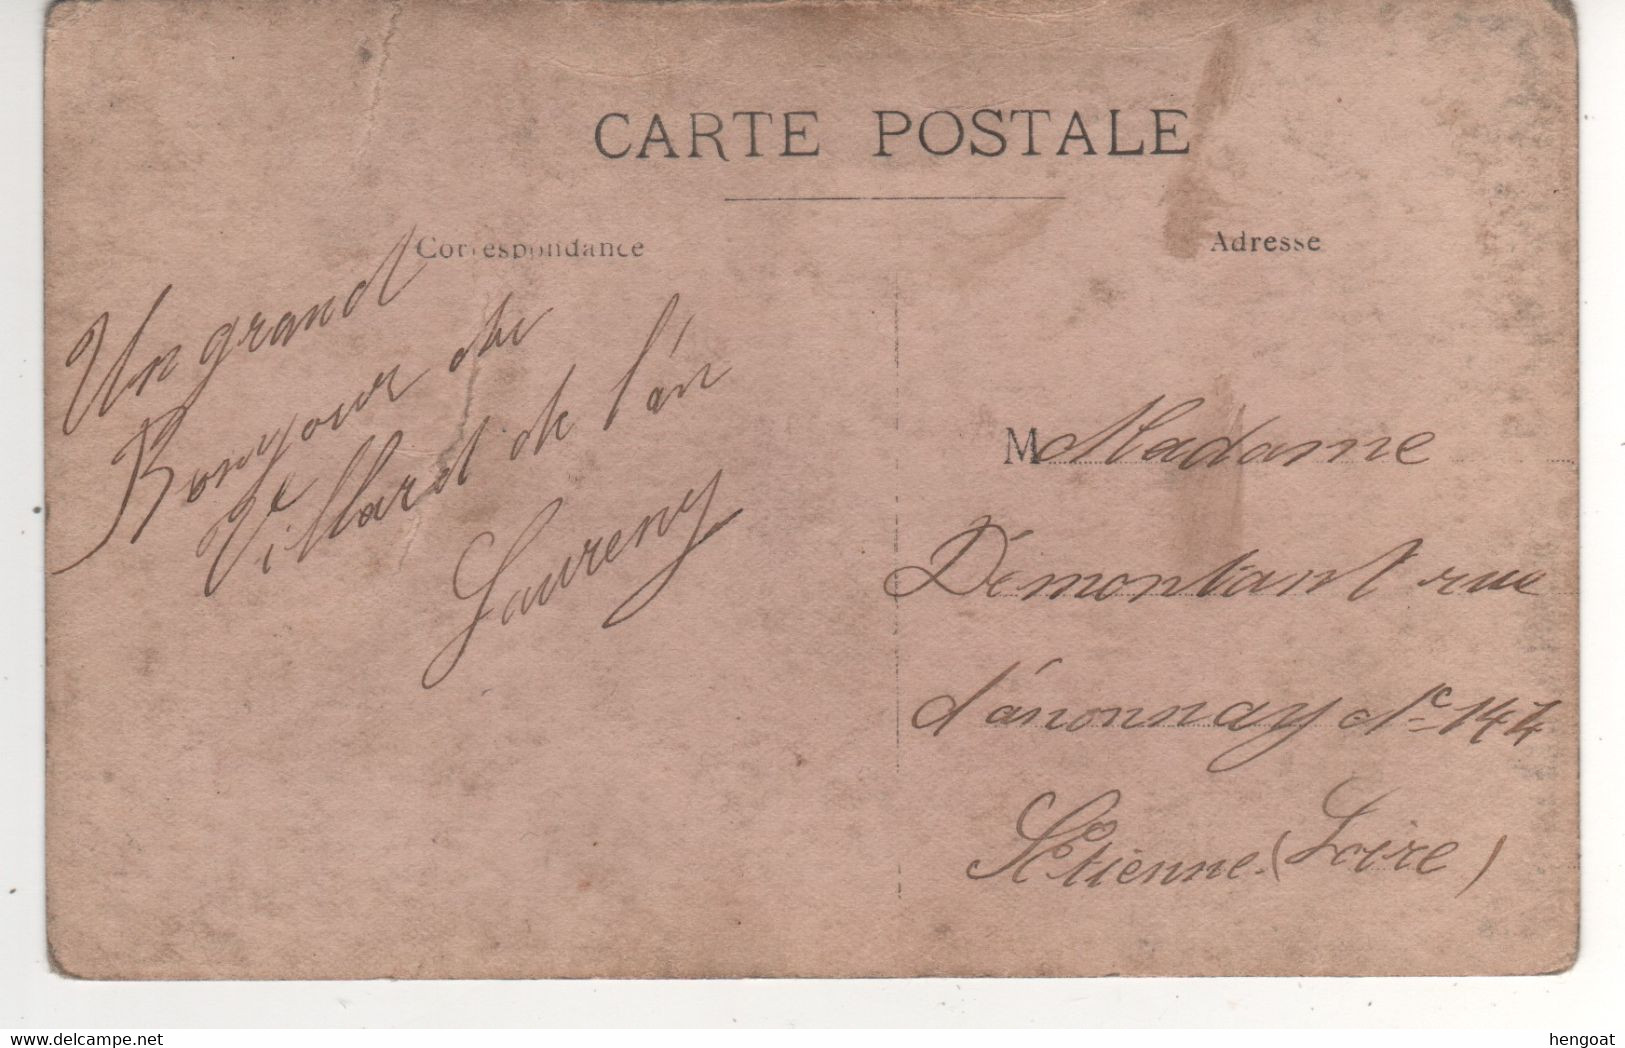 CARTE POSTALE
Correspondance
Adresse
Un grand
Bonjour du
Villard de l'an
Laureny
M Madame
Démontant rue
d'anonnay
St Etienne (Loire)
hengoat